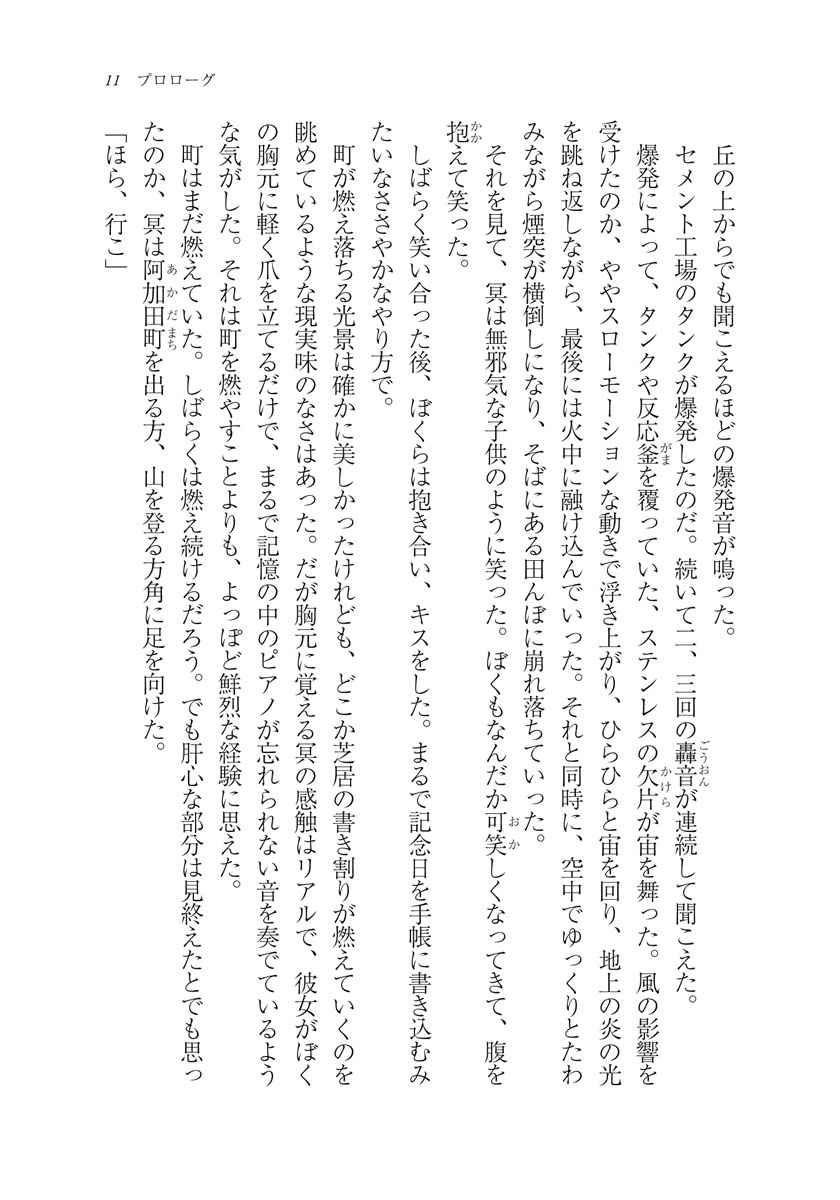 11 プロローグ
丘の上からでも聞こえるほどの爆発音が鳴った。
セメント工場のタンクが爆発したのだ。続いて二、三回の轟音が連続して聞こえた。
爆発によって、タンクや反応釜を覆っていた、ステンレスの欠片が宙を舞った。風の影響を
受けたのか、ややスローモーションな動きで浮き上がり、ひらひらと宙を回り、地上の炎の光
を跳ね返しながら、最後には火中に融け込んでいった。それと同時に、空中でゆっくりとたわ
みながら煙突が横倒しになり、そばにある田んぼに崩れ落ちていった。
それを見て、冥は無邪気な子供のように笑った。ぼくもなんだか可笑しくなってきて、腹を
抱えて笑った。
しばらく笑い合った後、ぼくらは抱き合い、キスをした。まるで記念日を手帳に書き込むみ
たいなささやかなやり方で。
町が燃え落ちる光景は確かに美しかったけれども、どこか芝居の書き割りが燃えていくのを
眺めているような現実味のなさはあった。だが胸元に覚える冥の感触はリアルで、彼女がぼく
の胸元に軽く爪を立てるだけで、まるで記憶の中のピアノが忘れられない音を奏でているよう
な気がした。それは町を燃やすことよりも、よっぽど鮮烈な経験に思えた。
町はまだ燃えていた。しばらくは燃え続けるだろう。でも肝心な部分は見終えたとでも思っ
たのか、冥は阿加田町を出る方、山を登る方角に足を向けた。
「ほら、行こ」